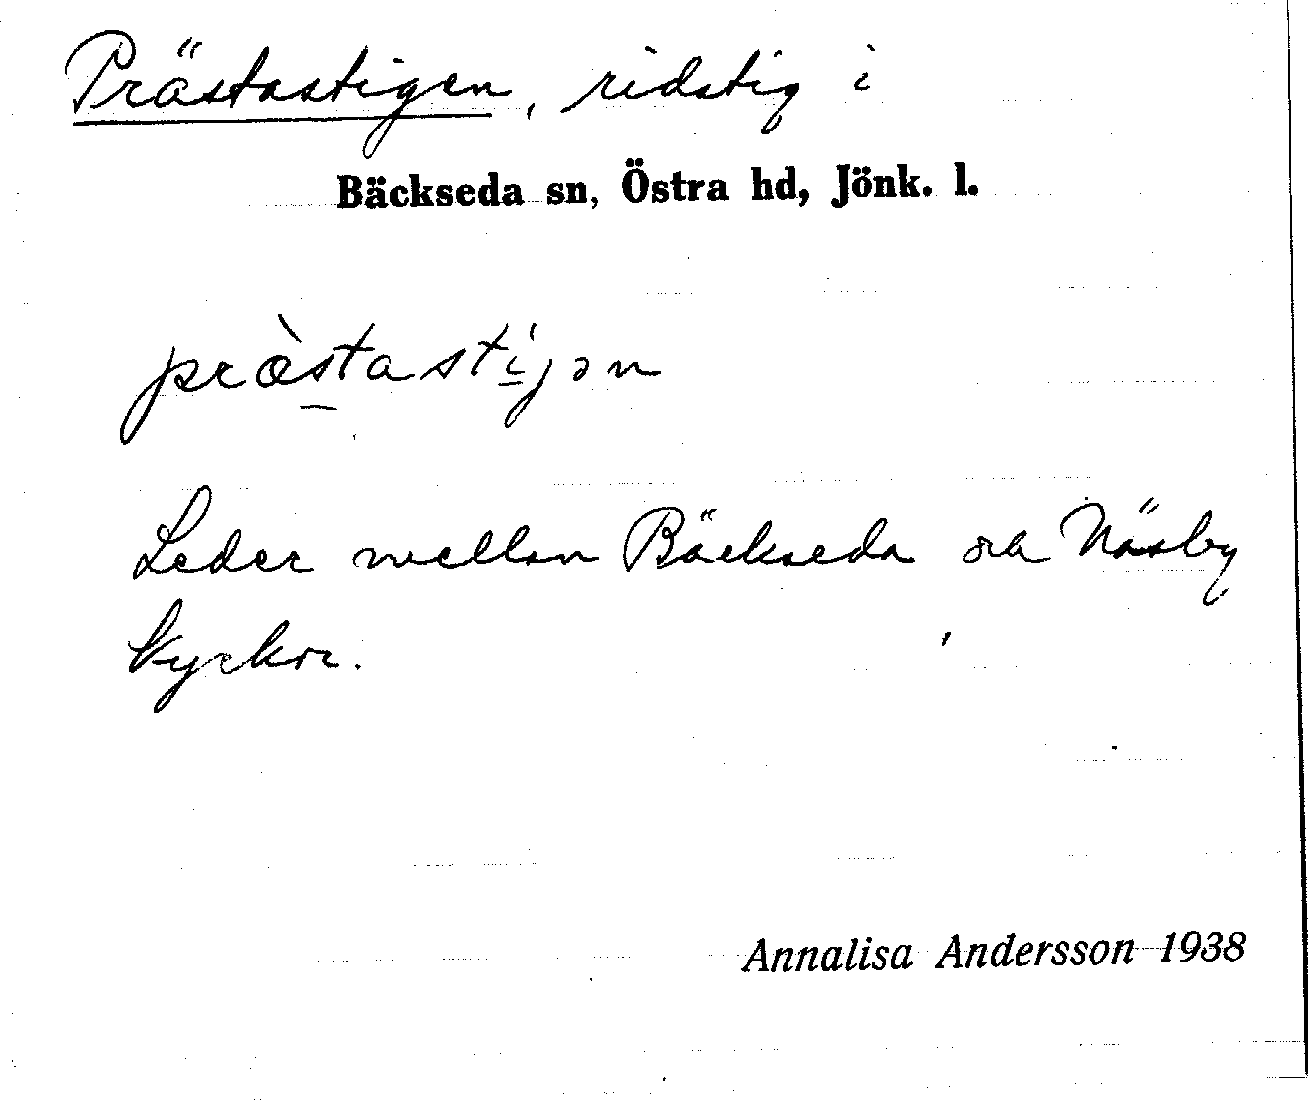 Prästastigen, ridstig i
Bäckseda sn, Östra hd, Jönk. l.
præ̀stasti̱jən
Leder mellan Bäckseda och Näsby
kyrkor.
Annalisa Andersson 1938